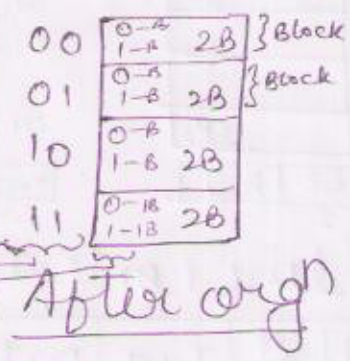 00 0-B 1-B 2B } Block
01 0-B 1-B 2B } Block
10 0-B 1-B 2B
11 0-1B 1-1B 2B
After orgn